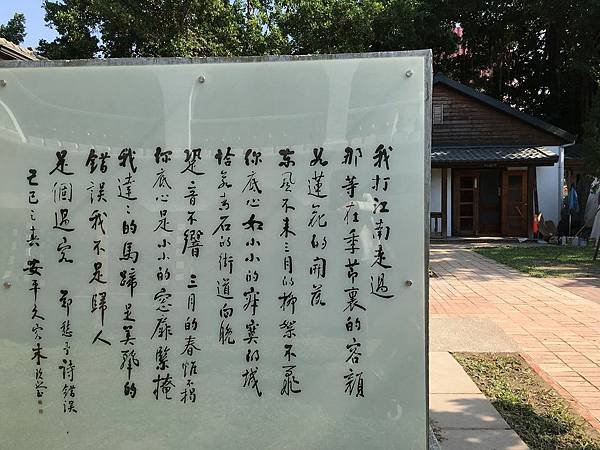 我打江南走過
那等在季節裏的容顏
如蓮花的開落
東風不來三月的柳絮不飛
你底心如小小的寂寞的城
恰若青石的街道向晚
跫音不響 三月的春帷不揭
你底心是小小的窗扉緊掩
我達〻的馬蹄是美麗的
錯誤我不是歸人
是個過客 鄭愁予詩錯誤
己巳之春 安平久客朱玖瑩